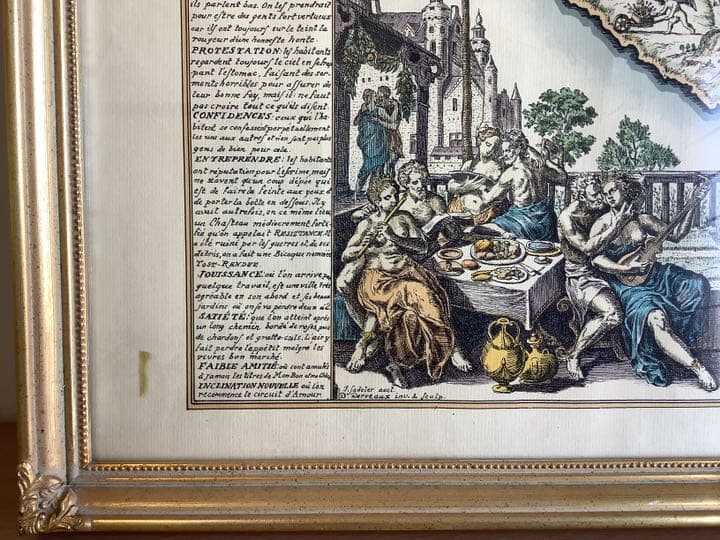 ils parlent bas. On les prendroit
pour estre des gents fort vertueux
car ils ont toujours sur le teint la
rougeur d'une honneste honte.
PROTESTATION: les habitants
regardent toujours le ciel en se frap-
pant l'estomac, faisant des ser-
ments horribles pour assurer de
leur bonne foy, mais il ne faut
pas croire tout ce qu'ils disent
CONFIDENCES: ceux qui l'ha-
bitent se confessent perpetuellement
les uns aux autres et n'en sont pas plus
gens de bien pour cela.
ENTREPRENDRE: les habitants
ont reputation pour l'escrime, mais
ne sçavent qu'un coup d'épée qui
est de faire la feinte aux yeux &
de porter la botte en dessous. Il y
avait autrefois, en ce même lieu
un Chasteau médiocrement forti-
fié qu'on appelait RESISTANCE. Il
a été ruiné par les guerres et, de ses
débris, on a fait une Bicoque nommée
TOST-RENDUE.
JOUISSANCE: où l'on arrive par
quelque travail, est une ville très
agréable en son abord et ses beaux
jardins où on se va perdre deux à 2.
SATIÉTÉ: que l'on atteint après
un long chemin bordé de roses, puis
de chardons et gratte-culs. L'air y
fait perdre l'appétit malgré les
vivres bon marché.
FAIBLE AMITIÉ: où sont amusés
à jamais les titres de Mon Bon et ma
INCLINATION NOUVELLE où l'on
recommence le circuit d'Amour.
J. Sadeler auct.
Derveaux inv. & sculp.